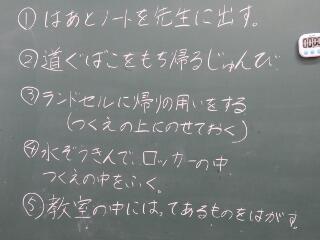 ①はあとノートを先生に出す。
②道ぐばこをもち帰るじゅんび
③ランドセルに帰りの用いをする
(つくえの上にのせておく)
④水ぞうきんで、ロッカーの中
つくえの中をふく。
⑤教室の中にはってあるものをはがす。